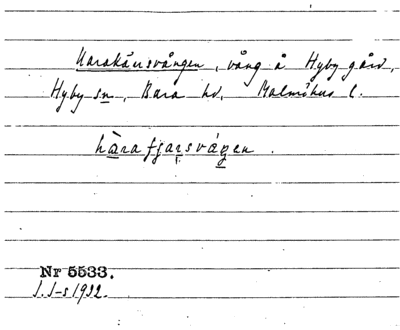 Harakärrsvången, vång å Hyby gård,
Hyby sn, Bara hd, Malmöhus l.
hàrafjarsvágen.
Nr 5533.
1932.